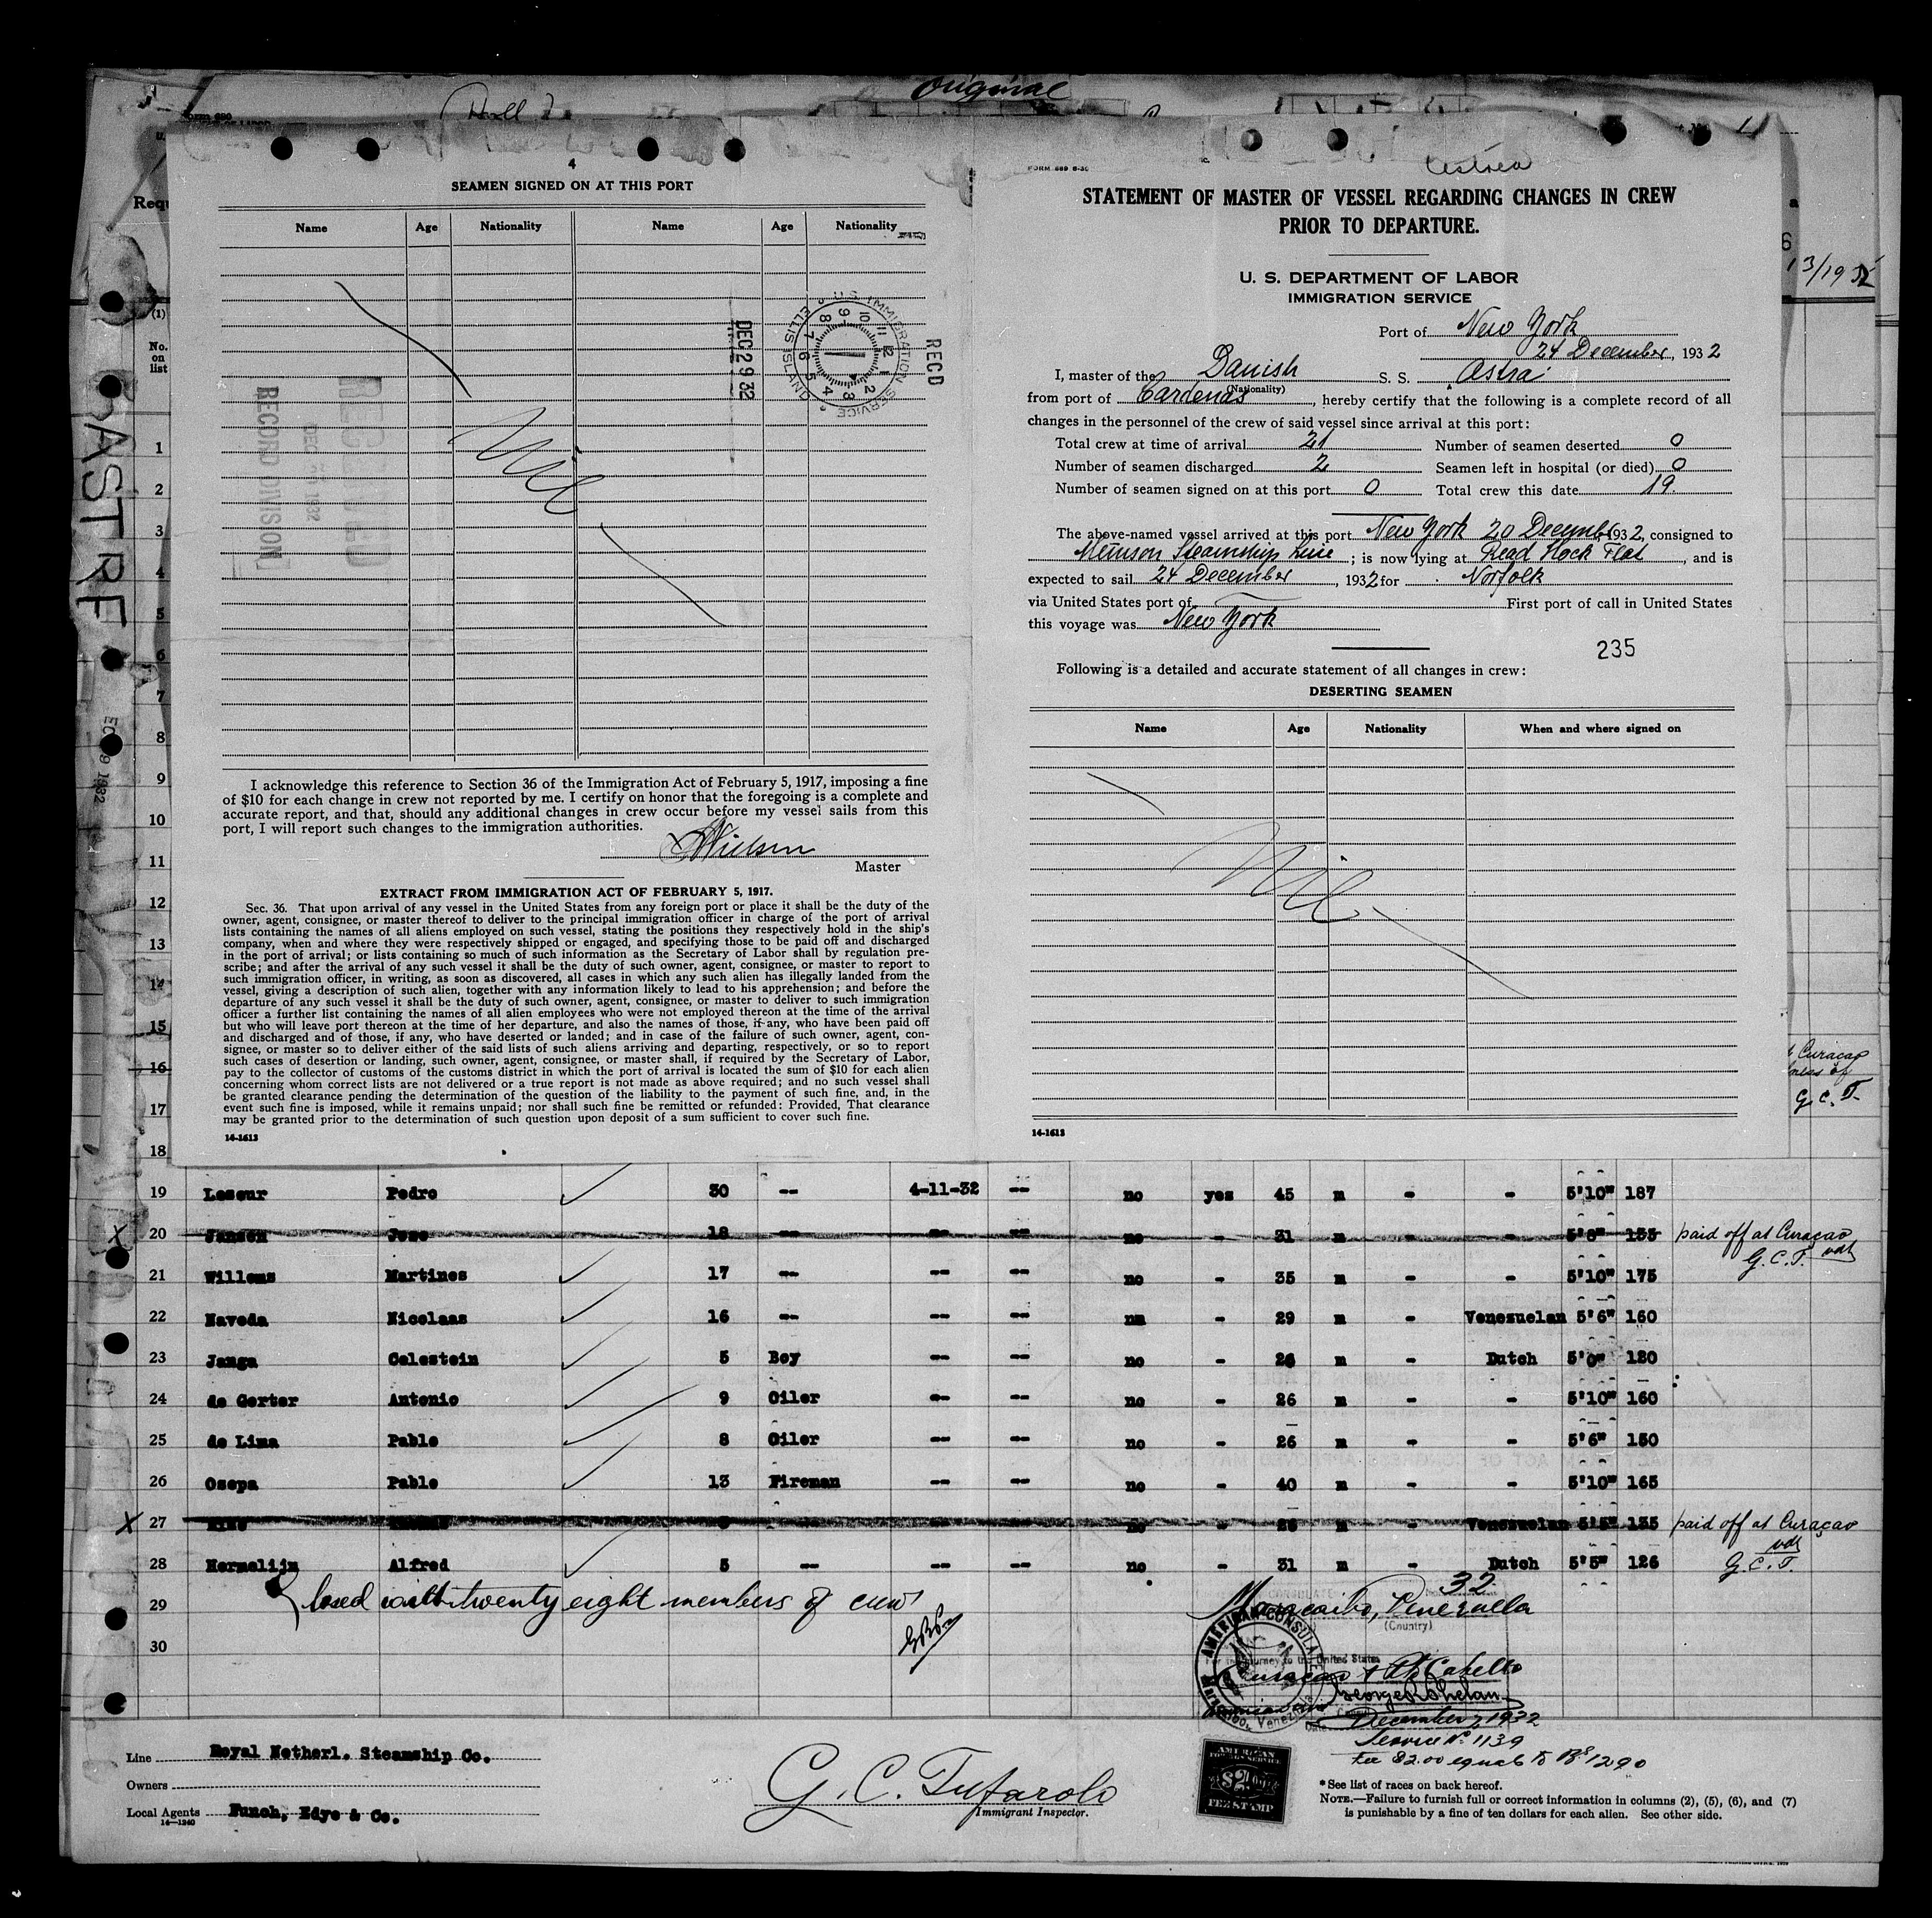 Original
Form 680
4
SEAMEN SIGNED ON AT THIS PORT
Name Age Nationality Name Age Nationality
Nil
RECD
U. S. IMMIGRATION SERVICE
ELLIS ISLAND
DEC 29 32
RECEIVED
DEC 1932
RECORD DIVISION
I acknowledge this reference to Section 36 of the Immigration Act of February 5, 1917, imposing a fine
of $10 for each change in crew not reported by me. I certify on honor that the foregoing is a complete and
accurate report, and that, should any additional changes in crew occur before my vessel sails from this
port, I will report such changes to the immigration authorities.
Master
EXTRACT FROM IMMIGRATION ACT OF FEBRUARY 5, 1917.
Sec. 36. That upon arrival of any vessel in the United States from any foreign port or place it shall be the duty of the
owner, agent, consignee, or master thereof to deliver to the principal immigration officer in charge of the port of arrival
lists containing the names of all aliens employed on such vessel, stating the positions they respectively hold in the ship's
company, when and where they were respectively shipped or engaged, and specifying those to be paid off and discharged
in the port of arrival; or lists containing so much of such information as the Secretary of Labor shall by regulation pre-
scribe; and after the arrival of any such vessel it shall be the duty of such owner, agent, consignee, or master to report to
such immigration officer, in writing, as soon as discovered, all cases in which any such alien has illegally landed from the
vessel, giving a description of such alien, together with any information likely to lead to his apprehension; and before the
departure of any such vessel it shall be the duty of such owner, agent, consignee, or master to deliver to such immigration
officer a further list containing the names of all alien employees who were not employed thereon at the time of the arrival
but who will leave port thereon at the time of her departure, and also the names of those, if any, who have been paid off
and discharged and of those, if any, who have deserted or landed; and in case of the failure of such owner, agent, con-
signee, or master so to deliver either of the said lists of such aliens arriving and departing, respectively, or so to report
such cases of desertion or landing, such owner, agent, consignee, or master shall, if required by the Secretary of Labor,
pay to the collector of customs of the customs district in which the port of arrival is located the sum of $10 for each alien
concerning whom correct lists are not delivered or a true report is not made as above required; and no such vessel shall
be granted clearance pending the determination of the question of the liability to the payment of such fine, and, in the
event such fine is imposed, while it remains unpaid; nor shall such fine be remitted or refunded: Provided, That clearance
may be granted prior to the determination of such question upon deposit of a sum sufficient to cover such fine.
14-1613
FORM 689 6-30
STATEMENT OF MASTER OF VESSEL REGARDING CHANGES IN CREW
PRIOR TO DEPARTURE.
U. S. DEPARTMENT OF LABOR
IMMIGRATION SERVICE
Port of New York
24 December, 1932
I, master of the Danish S. S. Astra
(Nationality)
from port of Cardenas, hereby certify that the following is a complete record of all
changes in the personnel of the crew of said vessel since arrival at this port:
Total crew at time of arrival 21 Number of seamen deserted 0
Number of seamen discharged 2 Seamen left in hospital (or died) 0
Number of seamen signed on at this port 0 Total crew this date 19.
The above-named vessel arrived at this port New York 20 December, 1932, consigned to
Munson Steamship Line; is now lying at Flat, and is
expected to sail 24 December, 1932 for Norfolk
via United States port of First port of call in United States
this voyage was New York
235
Following is a detailed and accurate statement of all changes in crew:
DESERTING SEAMEN
Name Age Nationality When and where signed on
Nil
14-1613
3/1932
Requ
(1)
No.
on
list
ASTREA
1
2
3
4
5
6
7
8
9
10
11
12
13
14
15
16 Curaçao
17 G. C. T.
18
19 Leseur Pedro 30 -- 4-11-32 -- no yes 45 m - - 5'10" 187
20 Jansen Jose 18 -- -- -- no - 31 m - - 5'8" 155 paid off at Curaçao
G. C. T.
21 Willems Martines 17 -- -- -- no - 35 m - - 5'10" 175
22 Naveda Nicolaas 16 -- -- -- no - 29 m - Venezuelan 5'6" 160
23 Janga Celestein 5 Boy -- -- no - 26 m - Dutch 5'0" 120
24 de Gorter Antonio 9 Oiler -- -- no - 26 m - - 5'10" 160
25 de Lima Pablo 8 Oiler -- -- no - 26 m - - 5'6" 150
26 Osepa Pablo 13 Fireman -- -- no - 40 m - - 5'10" 165
27 no - m - Venezuelan 5'5" 135 paid off at Curaçao
G. C. T.
28 Hermelijn Alfred 5 -- -- -- no - 31 m - Dutch 5'5" 126
29 Closed with twenty eight members of crew
30
32
Maracaibo, Venezuela
(Country)
AMERICAN CONSULATE
Maracaibo, Venezuela
For the journey to the United States
Curaçao & Pto Cabello
December 7 1932
Service No. 1139
Fee $2.00 equals to Bs 12.90
Line Royal Netherl. Steamship Co.
Owners
Local Agents Funch, Edye & Co.
14-1240
G. C. Tufarolo
Immigrant Inspector.
AMERICAN
FOREIGN SERVICE
$2
FEE STAMP
* See list of races on back hereof.
NOTE.—Failure to furnish full or correct information in columns (2), (5), (6), and (7)
is punishable by a fine of ten dollars for each alien. See other side.